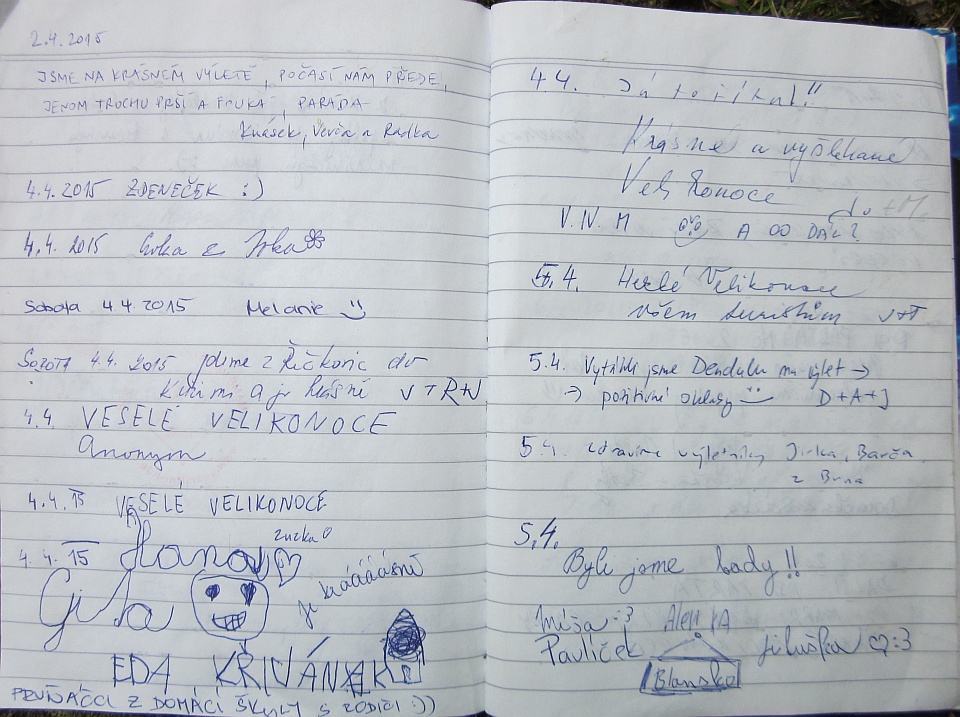 2.4.2015
JSME NA KRÁSNÉM VÝLETĚ, POČASÍ NÁM PŘEDE,
JENOM TROCHU PRŠÍ A FOUKÁ, PARÁDA
Kňásek, Verča a Radka
4.4.2015 ZDENEČEK :)
4.4. 2015
Sobota 4.4.2015 Melanie
SOBOTA 4.4. 2015 jdeme z Řičkovic do
Kuřimi a je krásně V+R+N
4.4. VESELÉ VELIKONOCE
Anonym
4.4.15 VESELÉ VELIKONOCE
zuzka
4.4.15 Hana
Gita je kráááásně
EDA KŘIVÁNEK
PRVŇÁČCI Z DOMÁCÍ ŠKOLY S RODIČI :))
4.4.
Krásné a vyšlehané
Velikonoce
V.IV. M A CO DÁL?
5.4. Hezké Velikonoce
všem turistům V+T
5.4. Vytáhli jsme Dendulu na výlet →
→ pozitivní ohlasy D+A+J
5.4. zdravíme výletníky Jirka, Barča
z Brna
5.4.
Byli jsme tady!!
Míša :3
Pavlíček Jiluška ♡:3
Blansko